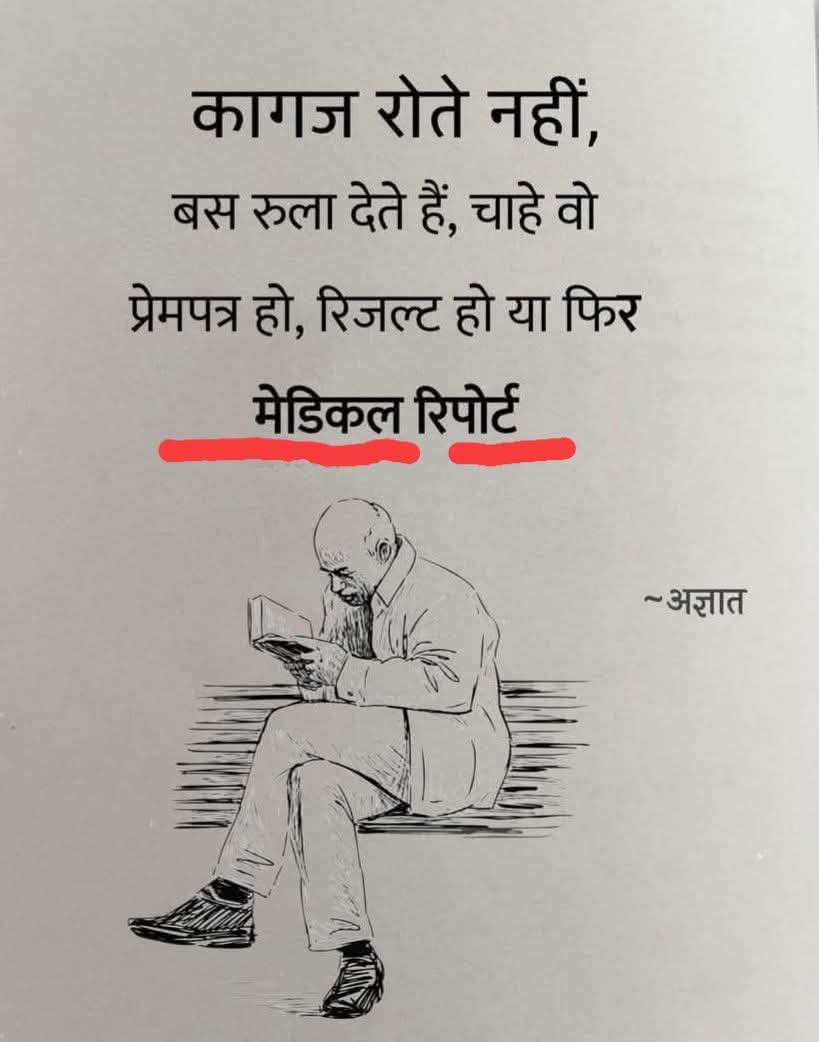 कागज रोते नहीं,
बस रुला देते हैं, चाहे वो
प्रेमपत्र हो, रिजल्ट हो या फिर
मेडिकल रिपोर्ट
~अज्ञात